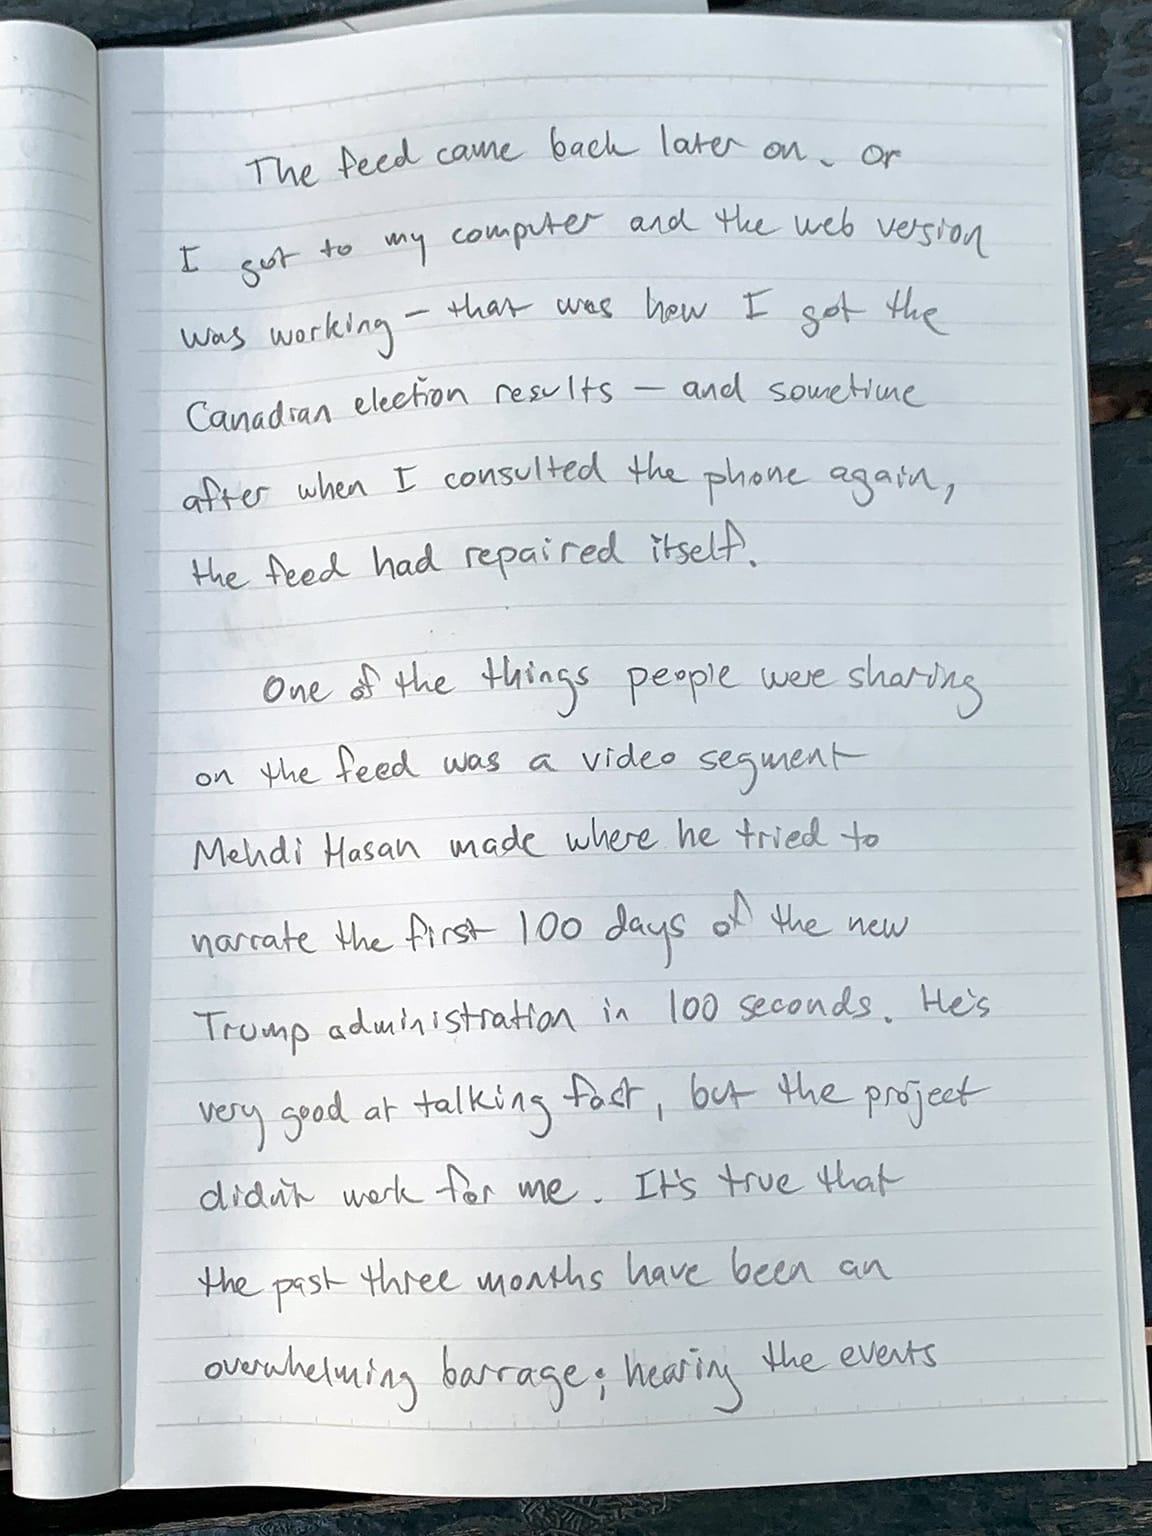 The feed came back later on. Or
I got to my computer and the web version
was working – that was how I got the
Canadian election results – and sometime
after when I consulted the phone again,
the feed had repaired itself.
One of the things people were sharing
on the feed was a video segment
Mehdi Hasan made where he tried to
narrate the first 100 days of the new
Trump administration in 100 seconds. He's
very good at talking fast, but the project
didn't work for me. It's true that
the past three months have been an
overwhelming barrage; hearing the events